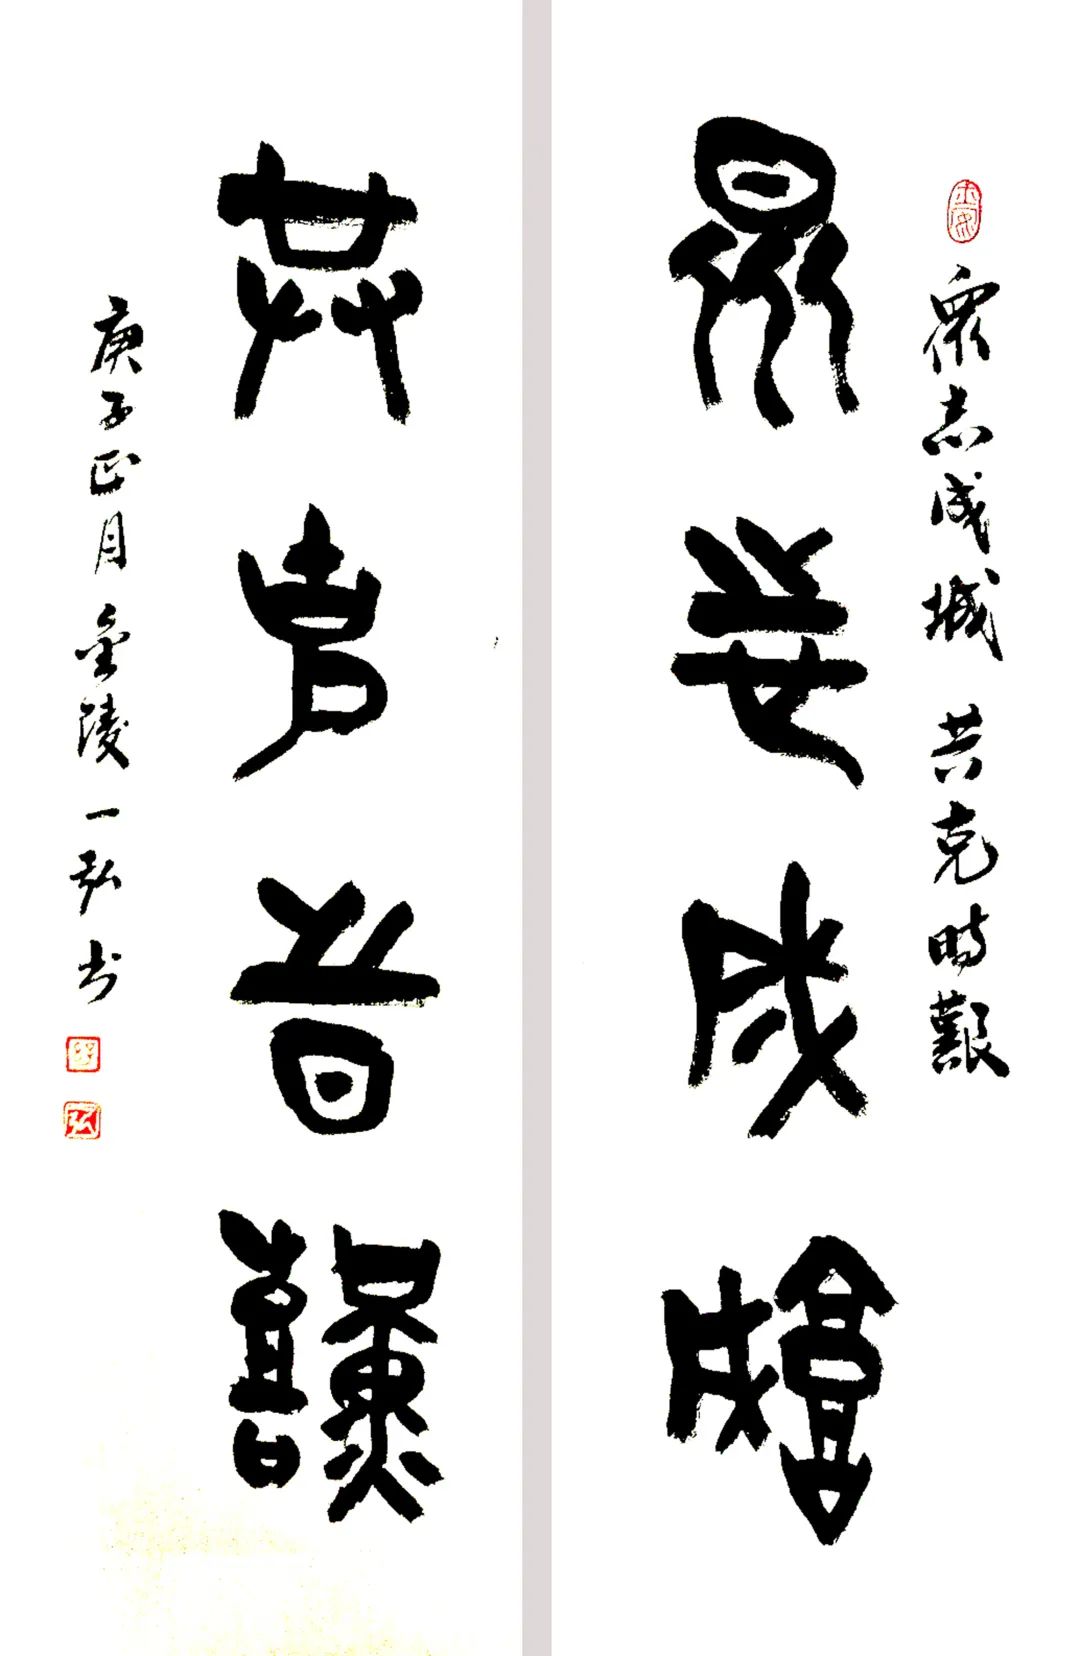 眾志成城 共克時艱
眾志成城
共克時艱
庚子正月金陵一弘书
弘